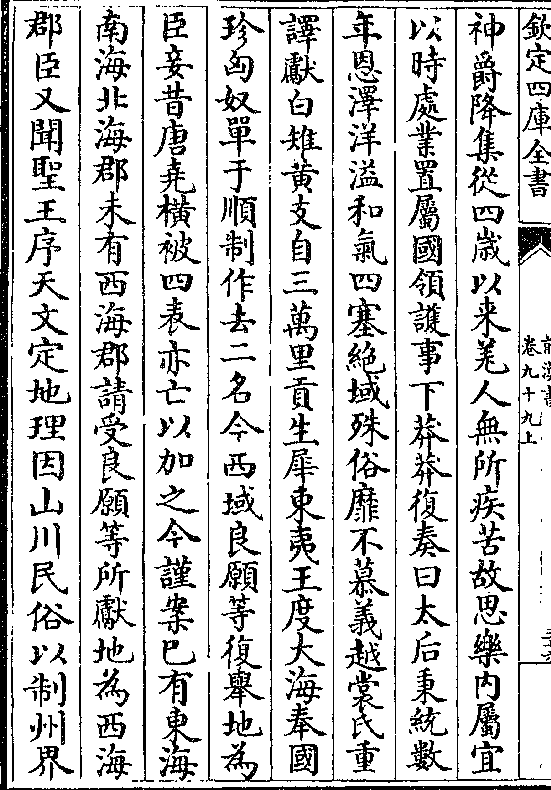 欽定四庫全書
卷九十九上
神爵降集從四歲以来羌人無所疾苦故思樂内屬宜
以時處業置屬國領護事下莽莽復奏曰太后秉統數
年恩澤洋溢和氣四塞絶域殊俗靡不慕義越裳氏重
譯獻白雉黄支自三萬里貢生犀東夷王度大海奉國
珍匈奴單于順制作去二名今西域良願等復舉地為
臣妾昔唐堯横被四表亦亡以加之今謹案已有東海
南海北海郡未有西海郡請受良願等所獻地為西海
郡臣又聞聖王序天文定地理因山川民俗以制州界